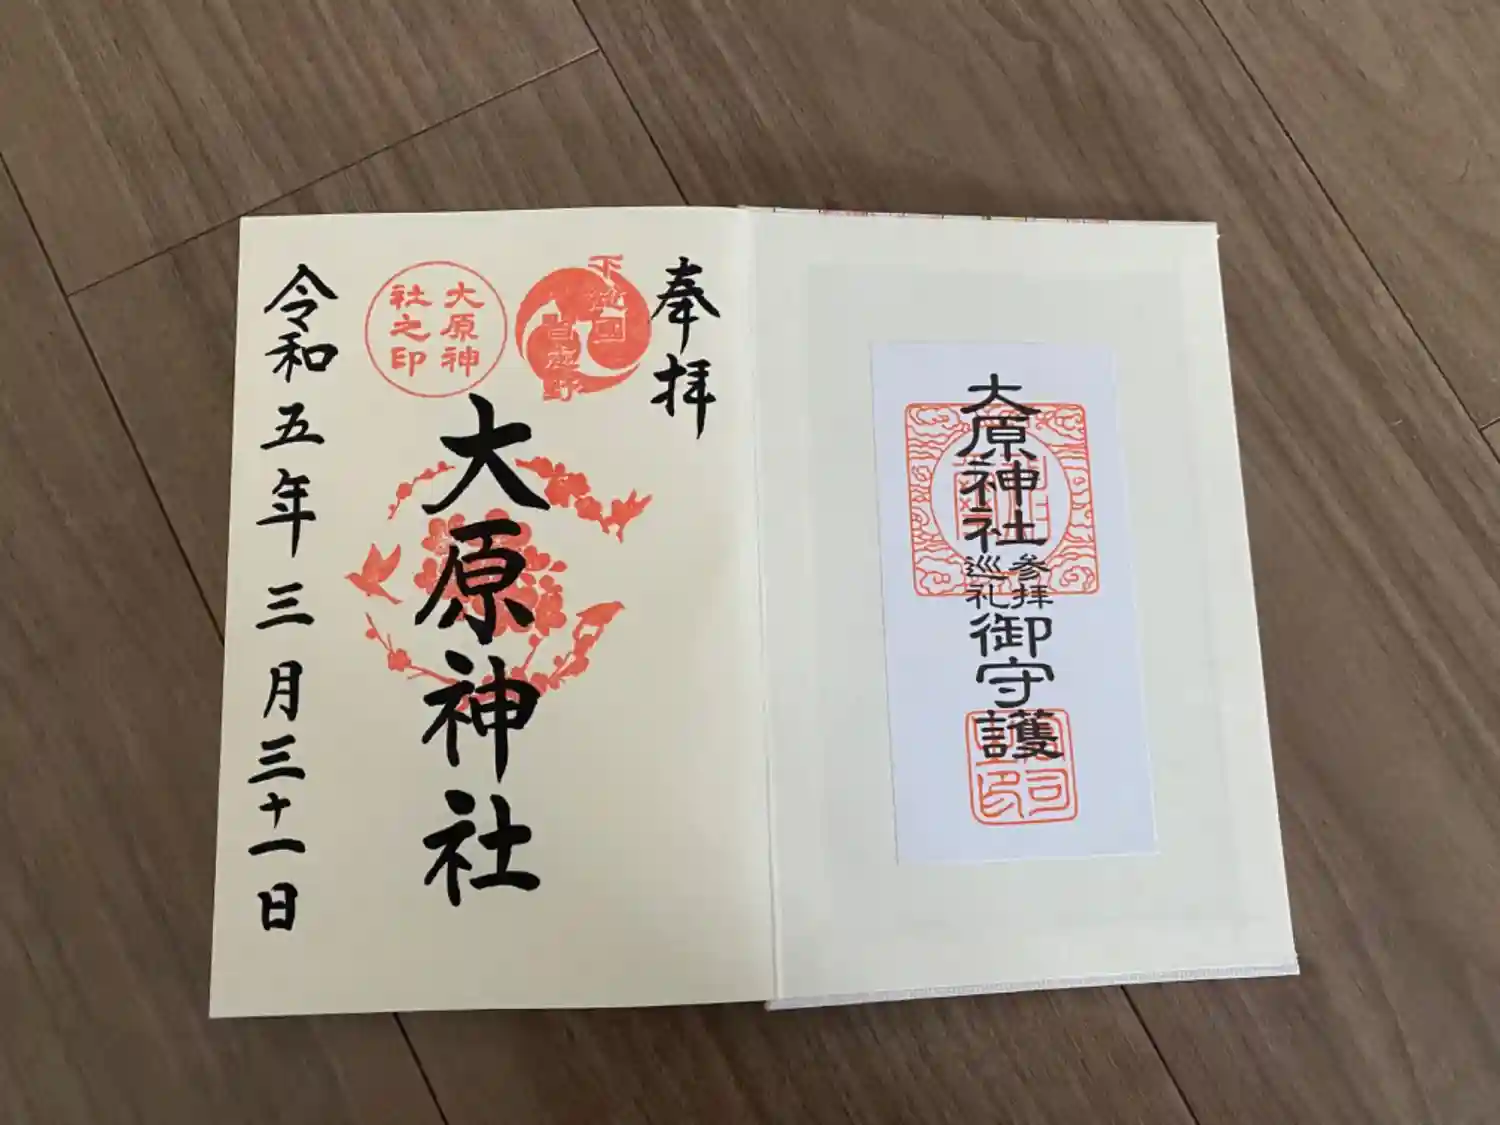 大原神社
参拝
巡礼
御守護
奉拝
下総國
習志野
大原神
社之印
大原神社
令和五年三月三十一日